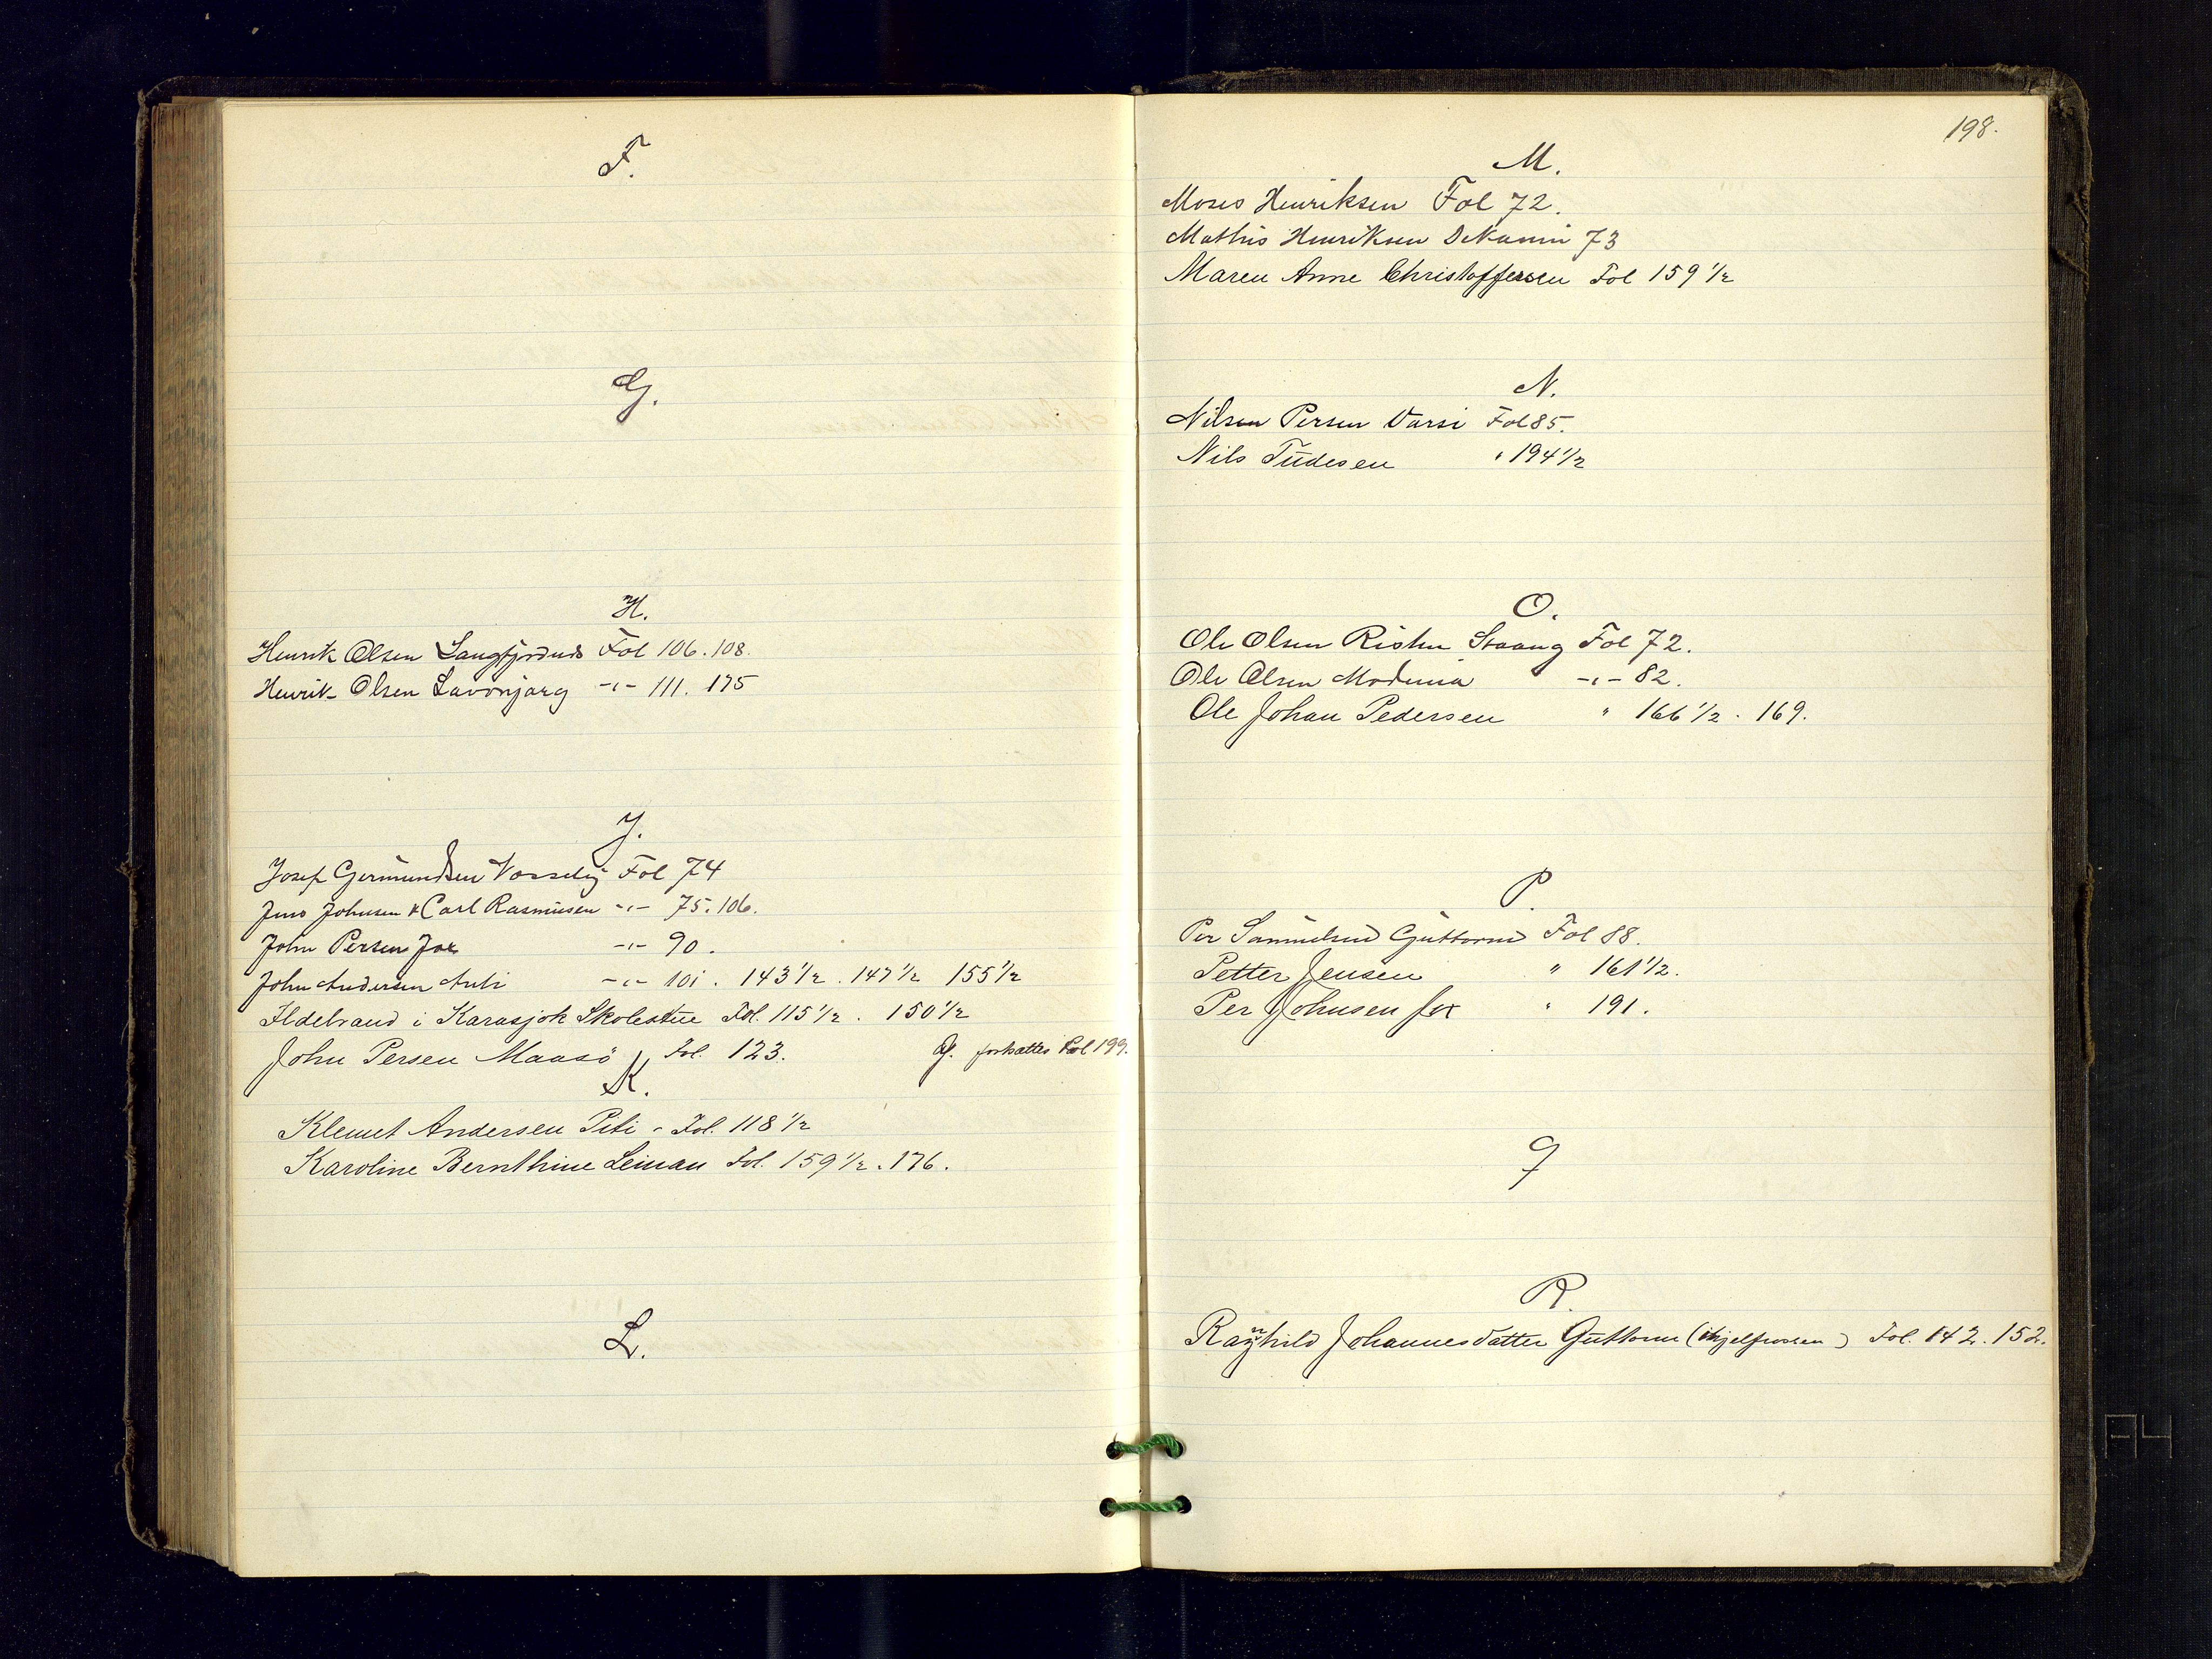 F.
G.
H.
Henrik Olsen Langfjordnes Fol 106. 108.
Henrik Olsen Lavvonjarg -"- 111. 175
J.
Josef Germundsen Fol 74
Jens Johnsen & Carl Rasmusen -"- 75. 106.
John Persen Jox -"- 90.
John Andersen Anti -"- 101. 143 1/2. 147 1/2 155 1/2
Ildebrand i Karasjok Skolestue Fol. 115 1/2. 150 1/2
John Persen Maasö Fol. 123. J. fortsættes Fol 199.
K.
Klemet Andersen Piti - Fol. 118 1/2
Karoline Bernthine Leinan Fol. 159 1/2. 176.
L.
198.
M.
Moses Henriksen Fol 72.
Mathis Henriksen 73
Maren Anne Christoffersen Fol 159 1/2
N.
Nilsen Persen Varsi Fol 85.
Nils Tudesen " 194 1/2
O.
Ole Olsen Fol 72.
Ole Olsen -"- 82.
Ole Johan Pedersen " 166 1/2. 169.
P.
Per Samuelsen Guttorm Fol 88.
Petter Jensen " 161 1/2.
Per Johnsen Jox " 191.
Q
R.
Raghnild Johannesdatter Guttorm (ihjelfrossen) Fol. 142. 152.
A4